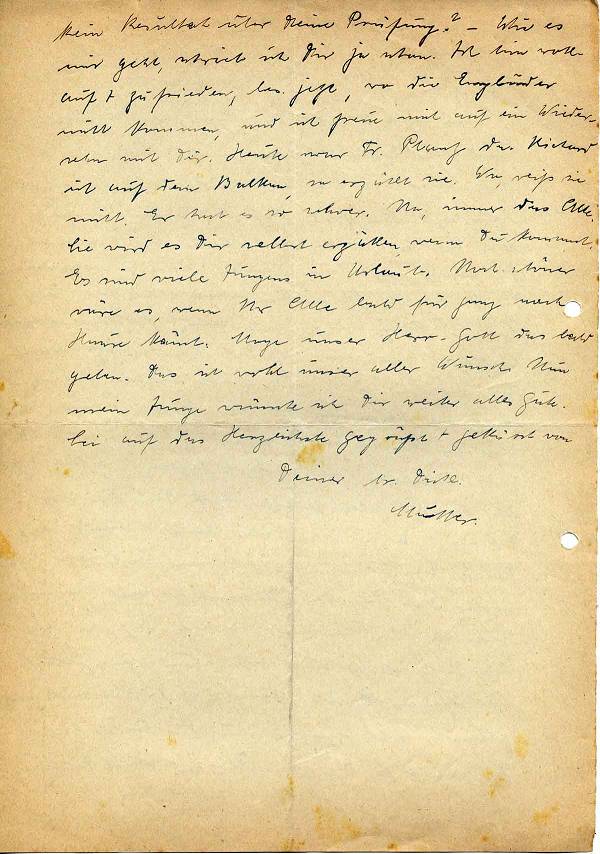 kein Resultat über Deine Prüfung? – Wie es
mir geht, schrieb ich Dir ja schon. Ich bin voll-
auf + zufrieden, bes. jetzt, wo die Engländer
nicht kommen, und ich freue mich auf ein Wieder-
sehn mit Dir. Heute war Fr. da. Richard
ist auf dem Balkan, so erzählt sie. Wo, weiß sie
nicht. Er hat es so schwer. Na, immer das Alte.
Sie wird es Dir selbst erzählen, wenn Du kommst.
Es sind viele Jungens in Urlaub. Noch schöner
wäre es, wenn Ihr Alle bald für ganz nach
Hause kämt. Möge unser Herr-Gott das bald
geben. Das ist wohl unser aller Wunsch. Nun
mein Junge wünsche ich Dir weiter alles Gute.
Sei auf das Herzlichste gegrüßt + geküsst von
Deiner
Mutter.